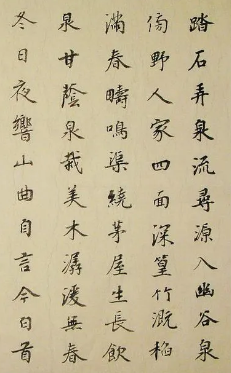 踏石弄泉流尋源入幽谷泉
傍野人家四面深篁竹溉稻
滿春疇鳴渠繞茅屋生長飲
泉甘蔭泉栽美木潺湲無春
冬日夜響山曲自言今白首